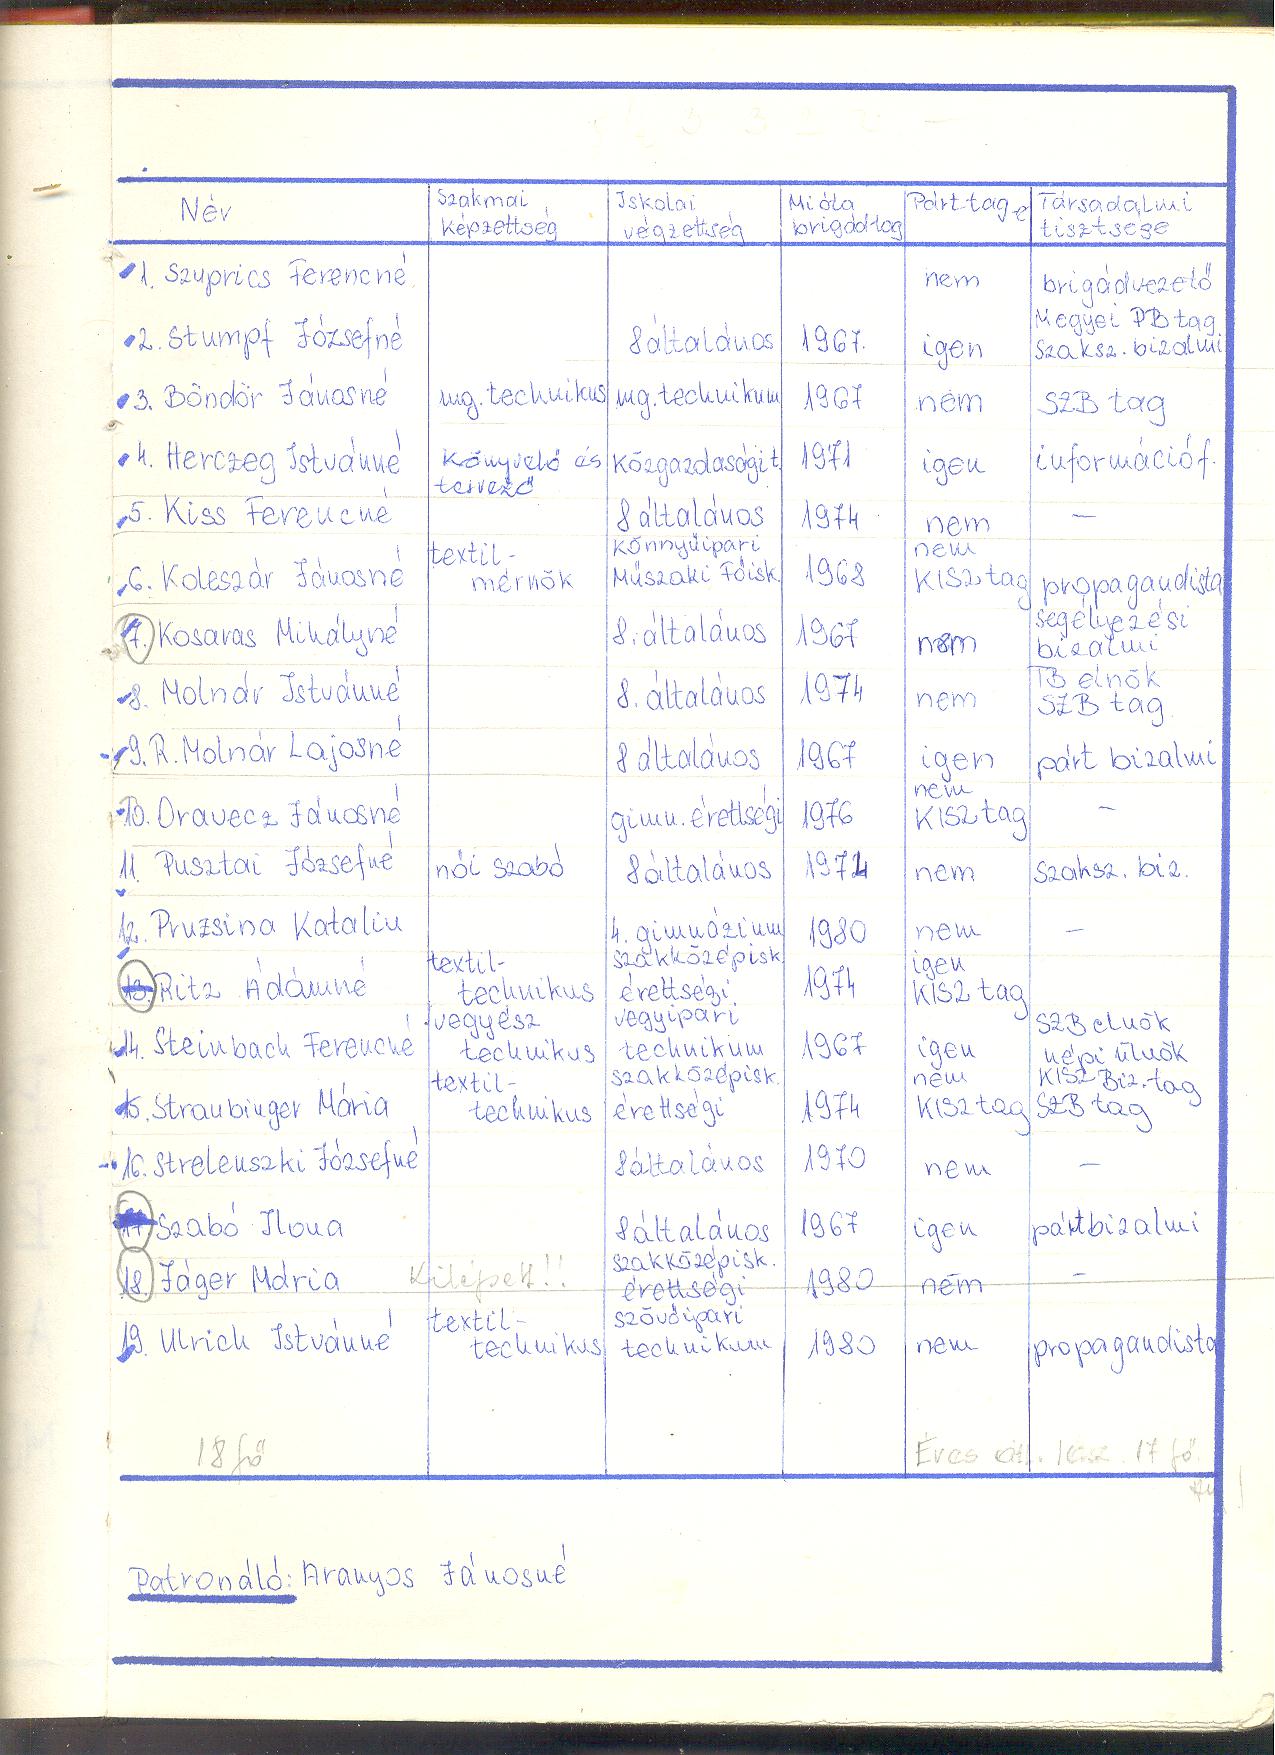 Név Szakmai képzettség Iskolai végzettség Mióta brigádtag Párttag-e Társadalmi tisztsége
1. Szuprics Ferencné nem brigádvezető
2. Stumpf Józsefné 8 általános 1967. igen Megyei PB tag Szaksz. bizalmi
3. Böndör Jánosné mg. technikus mg. technikum 1967 nem SZB tag
4. Herczeg Istvánné Könyvelő és tervező Közgazdasági t. 1971 igen információf.
5. Kiss Ferencné 8 általános 1974 nem —
6. Koleszár Jánosné textil-mérnök Könnyűipari Műszaki Főisk. 1968 nem KISZ tag propagandista
7. Kosaras Mihályné 8. általános 1967 nem segélyezési bizalmi
8. Molnár Istvánné 8. általános 1974 nem TB elnök SZB tag
9. R. Molnár Lajosné 8 általános 1967 igen párt bizalmi
10. Oravecz Jánosné gimn. érettségi 1976 nem KISZ tag —
11. Pusztai Józsefné női szabó 8 általános 1972 nem Szaksz. biz.
12. Pruzsina Katalin 4. gimnázium 1980 nem —
13. Ritz Ádámné textil-technikus szakközépisk. érettségi 1974 igen KISZ tag
14. Steinbach Ferencné vegyész technikus vegyipari technikum 1967 igen SZB elnök népi ülnök
15. Straubinger Mária textil-technikus szakközépisk. érettségi 1974 nem KISZ tag KISZ Biz. tag SZB tag
16. Strelenszki Józsefné 8 általános 1970 nem —
17. Szabó Ilona 8 általános 1967 igen pártbizalmi
18. Jáger Mária Kilépett!! szakközépisk. érettségi 1980 nem —
19. Ulrich Istvánné textil-technikus szövőipari technikum 1980 nem propagandista
18 fő Éves átl. lész. 17 fő.
Patronáló: Aranyos Jánosné